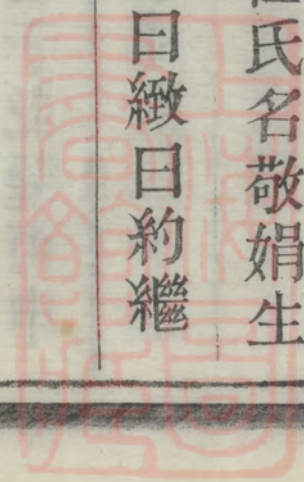 氏名敬娟生
曰緻曰約繼